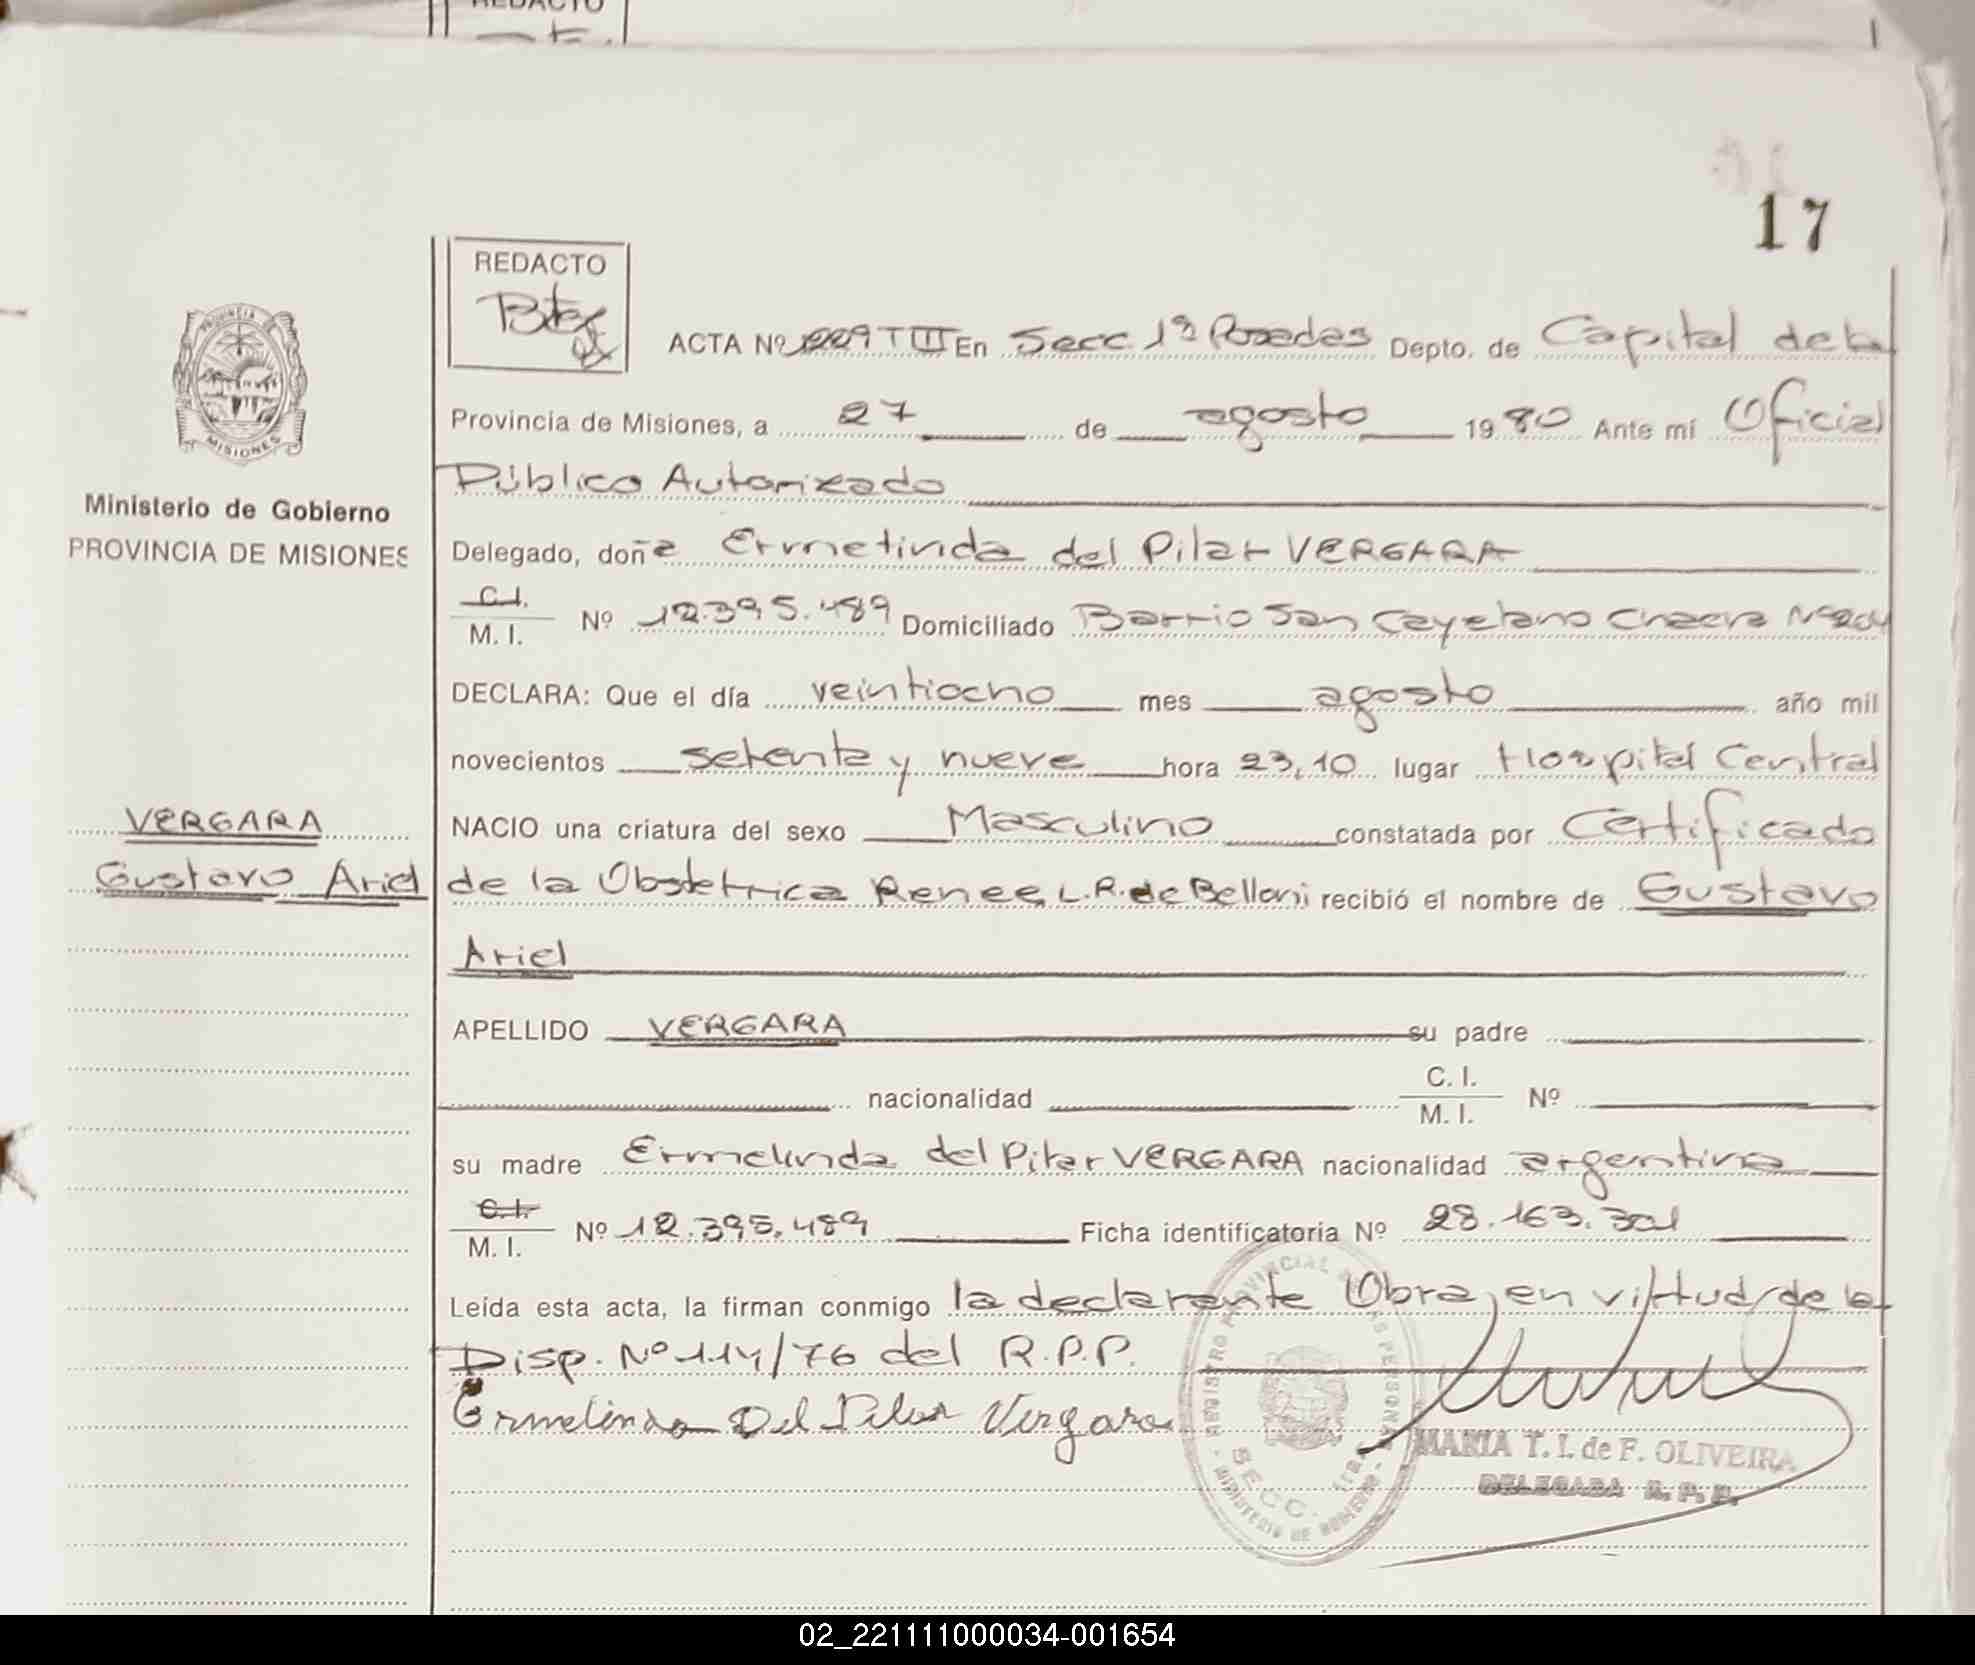 REDACTO
17
REDACTO
ACTA Nº 009 T III En Secc 1ª Posadas Depto. de Capital de la
Provincia de Misiones, a 27 de agosto 1980 Ante mí Oficial
Público Autorizado
Ministerio de Gobierno
PROVINCIA DE MISIONES
Delegado, doña Ermelinda del Pilar VERGARA
C.I.
M. I. Nº 12.395.489 Domiciliado Barrio San Cayetano Chacra Nº 204
DECLARA: Que el día veintiocho mes agosto año mil
novecientos setenta y nueve hora 23,10 lugar Hospital Central
VERGARA
NACIO una criatura del sexo Masculino constatada por Certificado
Gustavo Ariel
de la Obstetrica Renee L.R. de Belloni recibió el nombre de Gustavo
Ariel
APELLIDO VERGARA su padre
nacionalidad C. I.
M. I. Nº
su madre Ermelinda del Pilar VERGARA nacionalidad argentina
C.I.
M. I. Nº 12.395.489 Ficha identificatoria Nº 28.163.301
Leída esta acta, la firman conmigo la declarante Obra, en virtud de la
Disp. Nº 114/76 del R.P.P.
Ermelinda Del Pilar Vergara
MARIA T. I. de F. OLIVEIRA
DELEGADA R. P. P.
02_221111000034-001654